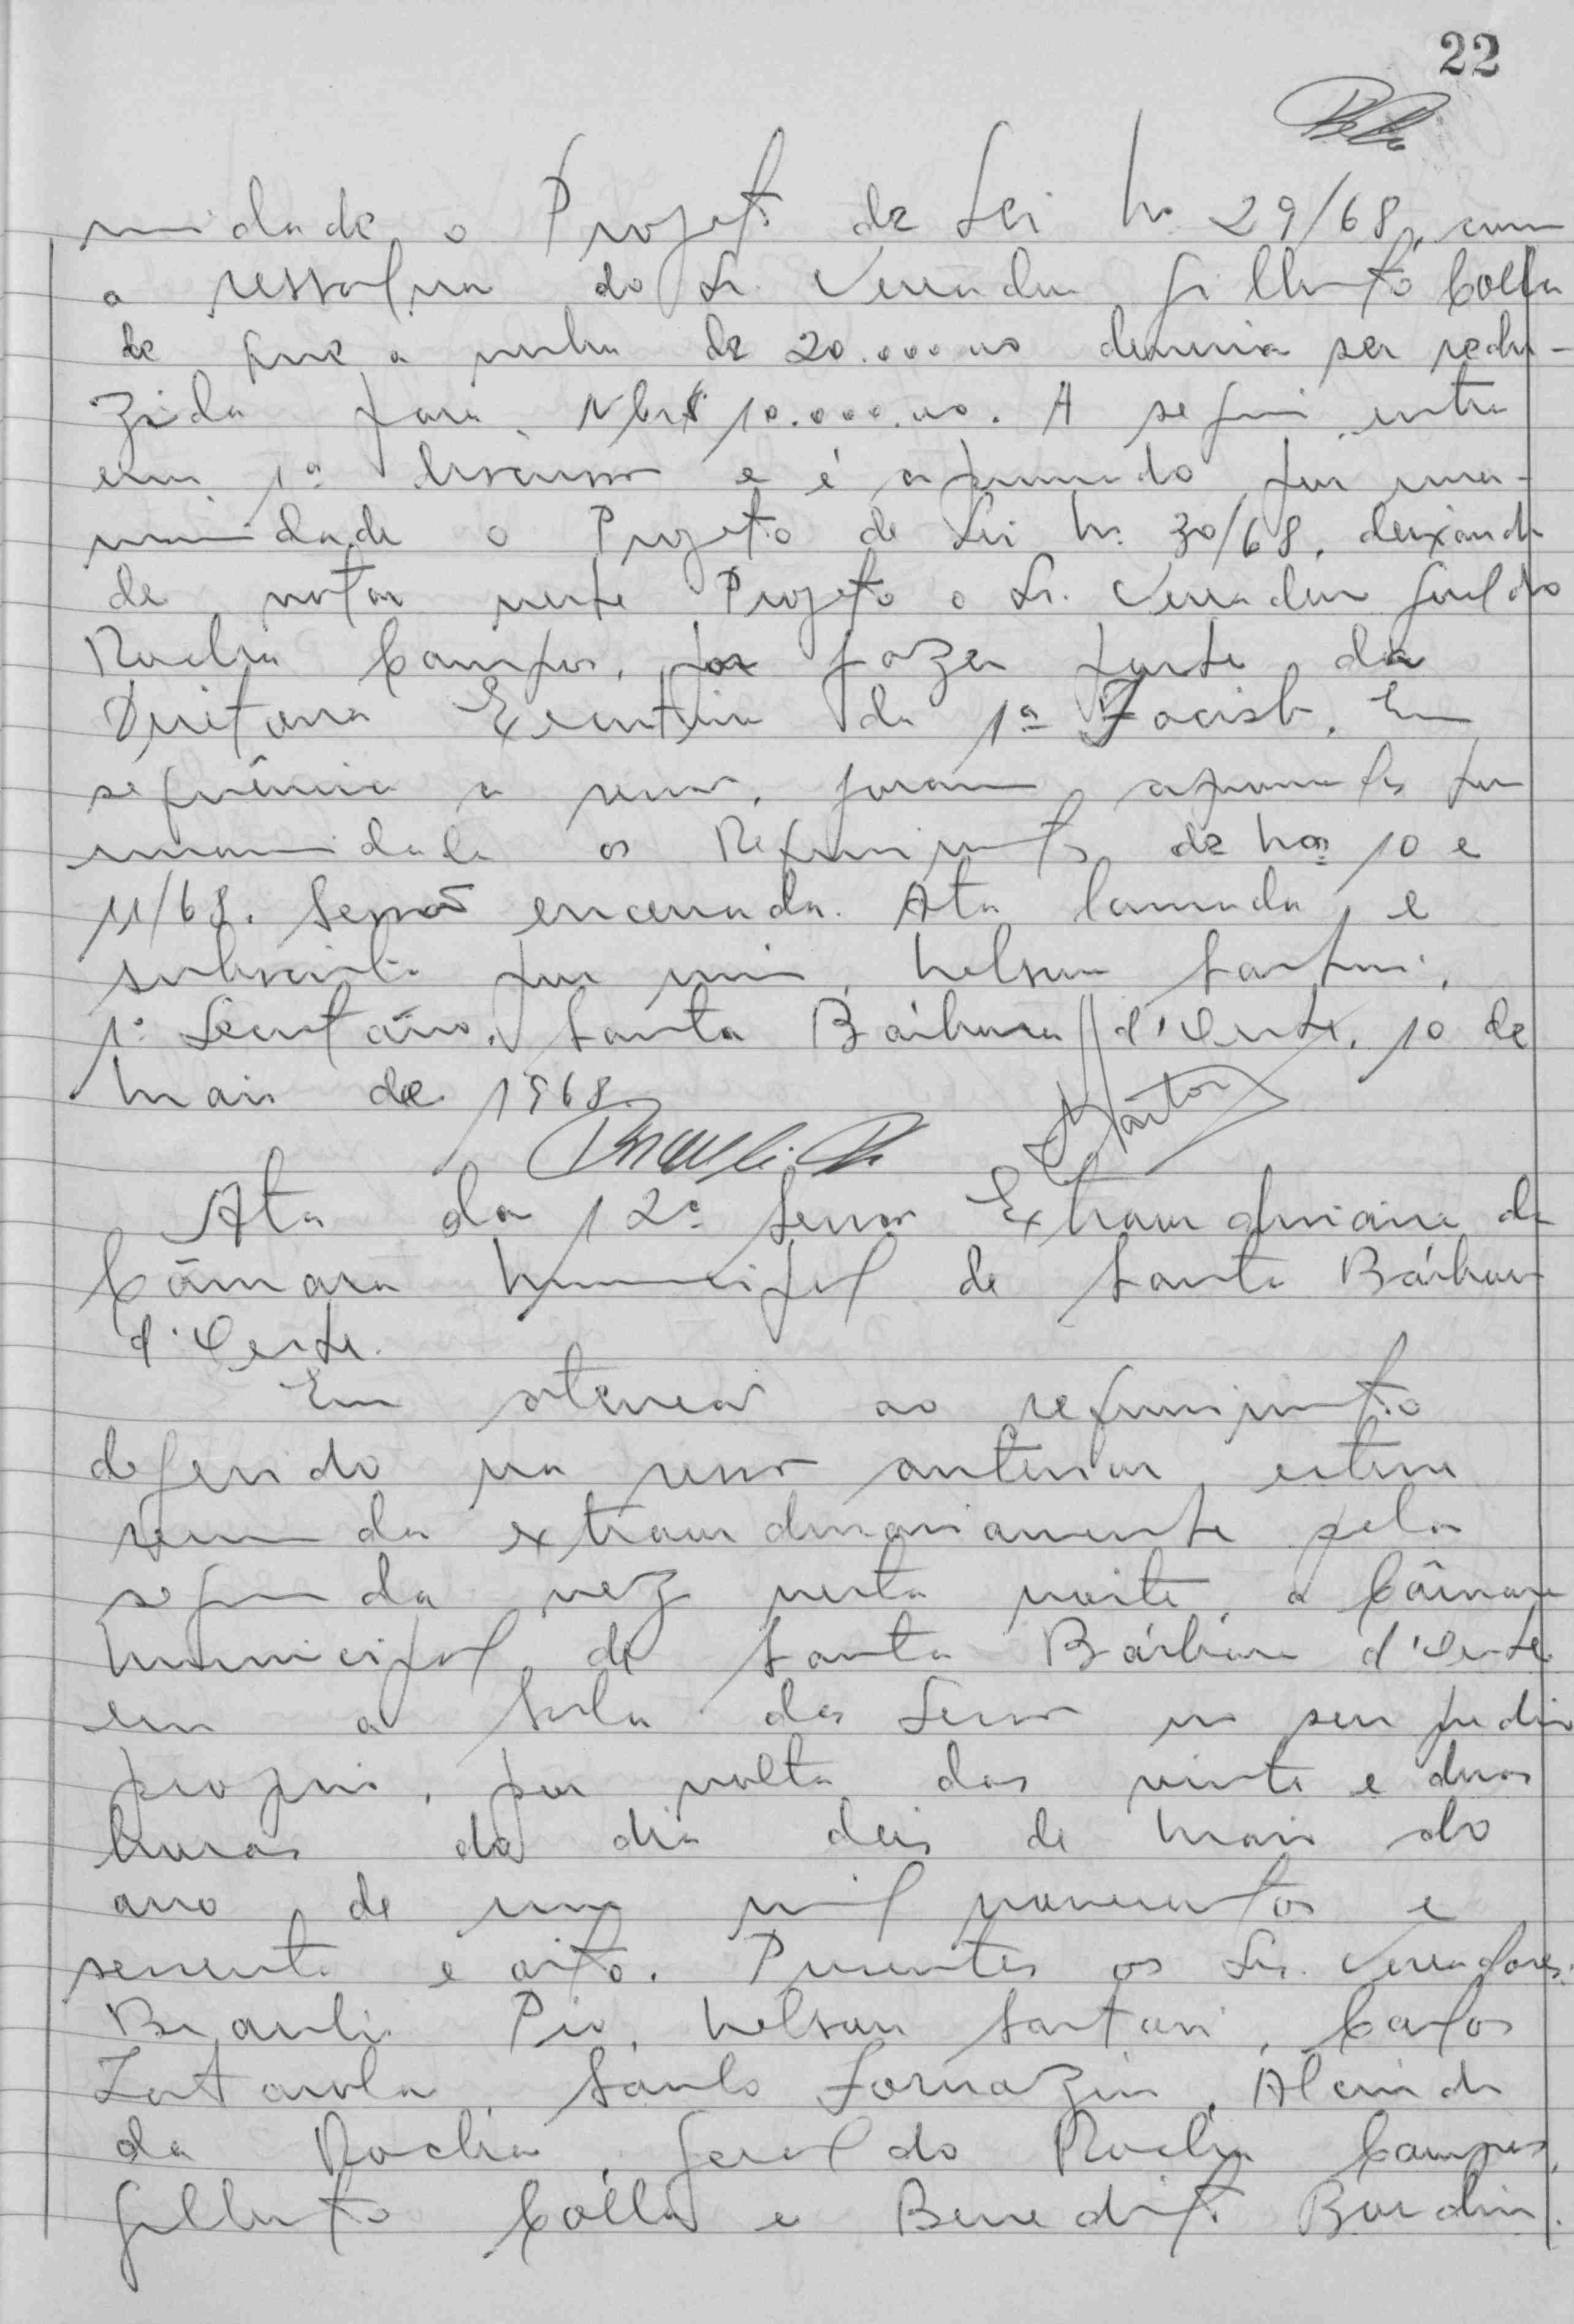 22
nimidade o Projeto de Lei No. 29/68, com
a ressalva do Sr. Vereador Gilberto Colla
de que a verba de 20.000,00 deveria ser redu-
zida para NCr$ 10.000,00. A seguir, entra
em 1ª discussão e é aprovado por una-
nimidade o Projeto de Lei No. 30/68, deixando
de votar neste Projeto o Sr. Vereador Geraldo
Rocha Campos, por fazer parte da
Diretoria Executiva da 1ª Facisb. Em
sequência a sessão, foram aprovados por
unanimidade os Requerimentos de Nos. 10 e
11/68. Sessão encerrada. Ata lavrada e
subscrita por mim, Nelson Sartori,
1º Secretário. Santa Bárbara d'Oeste, 10 de
Maio de 1968.
Ata da 12ª Sessão Extraordinária da
Câmara Municipal de Santa Bárbara
d'Oeste.
Em atenção ao requerimento
deferido na sessão anterior, esteve
reunida extraordinariamente pela
segunda vez nesta noite, a Câmara
Municipal de Santa Bárbara d'Oeste
em a Sala das Sessões no seu prédio
próprio, por volta das vinte e duas
horas do dia deis de Maio do
ano de um mil novecentos e
sessenta e oito. Presentes os Srs. Vereadores:
Braulio Pio, Nelson Sartori, Carlos
Zatarola, Santo Fornazin, Alcindo
da Rocha, Geraldo Rocha Campos,
Gilberto Colla e Benedito Bordin.